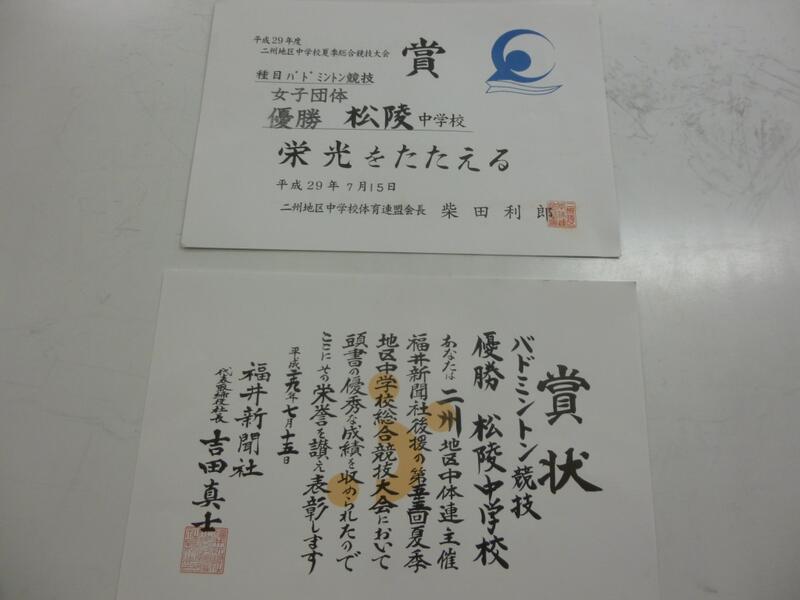 平成29年度
二州地区中学校夏季総合競技大会
賞
種目バドミントン競技
女子団体
優勝 松陵中学校
栄光をたたえる
平成29年7月15日
二州地区中学校体育連盟会長 柴田利郎
賞状
バドミントン競技
優勝 松陵中学校
あなたは二州地区中体連主催
福井新聞社後援の第五三回夏季
地区中学校総合競技大会において
頭書の優秀な成績を収められたので
ここにその栄誉を讃え表彰します
平成二九年七月十五日
福井新聞社
代表取締役社長 吉田真士